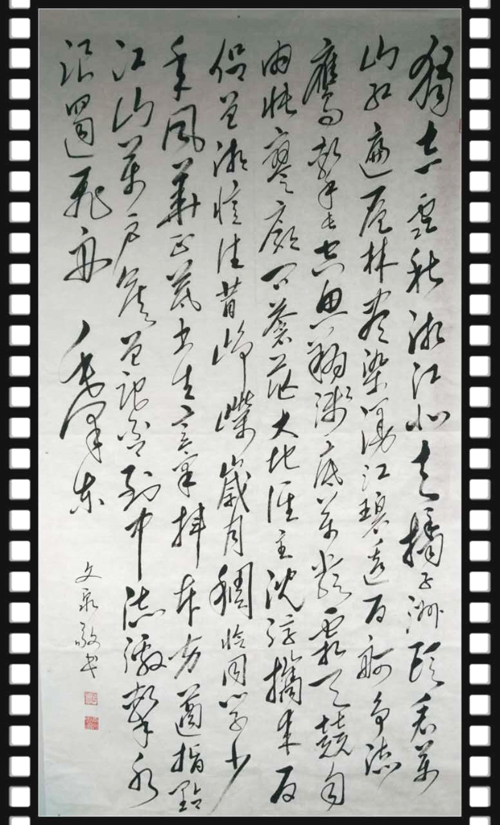 獨立寒秋湘江北去橘子洲頭看萬
山红遍層林尽染漫江碧透百舸争流
鷹擊长空鱼翔浅底萬类霜天競自
由怅寥廓问蒼茫大地谁主沉浮携来百
侣曾游忆往昔峥嵘歲月稠恰同学少
年风華正茂书生意氣挥斥方遒指點
江山萬户侯曾记否到中流激擊水
浪遏飛舟 毛泽东
文泉敬书